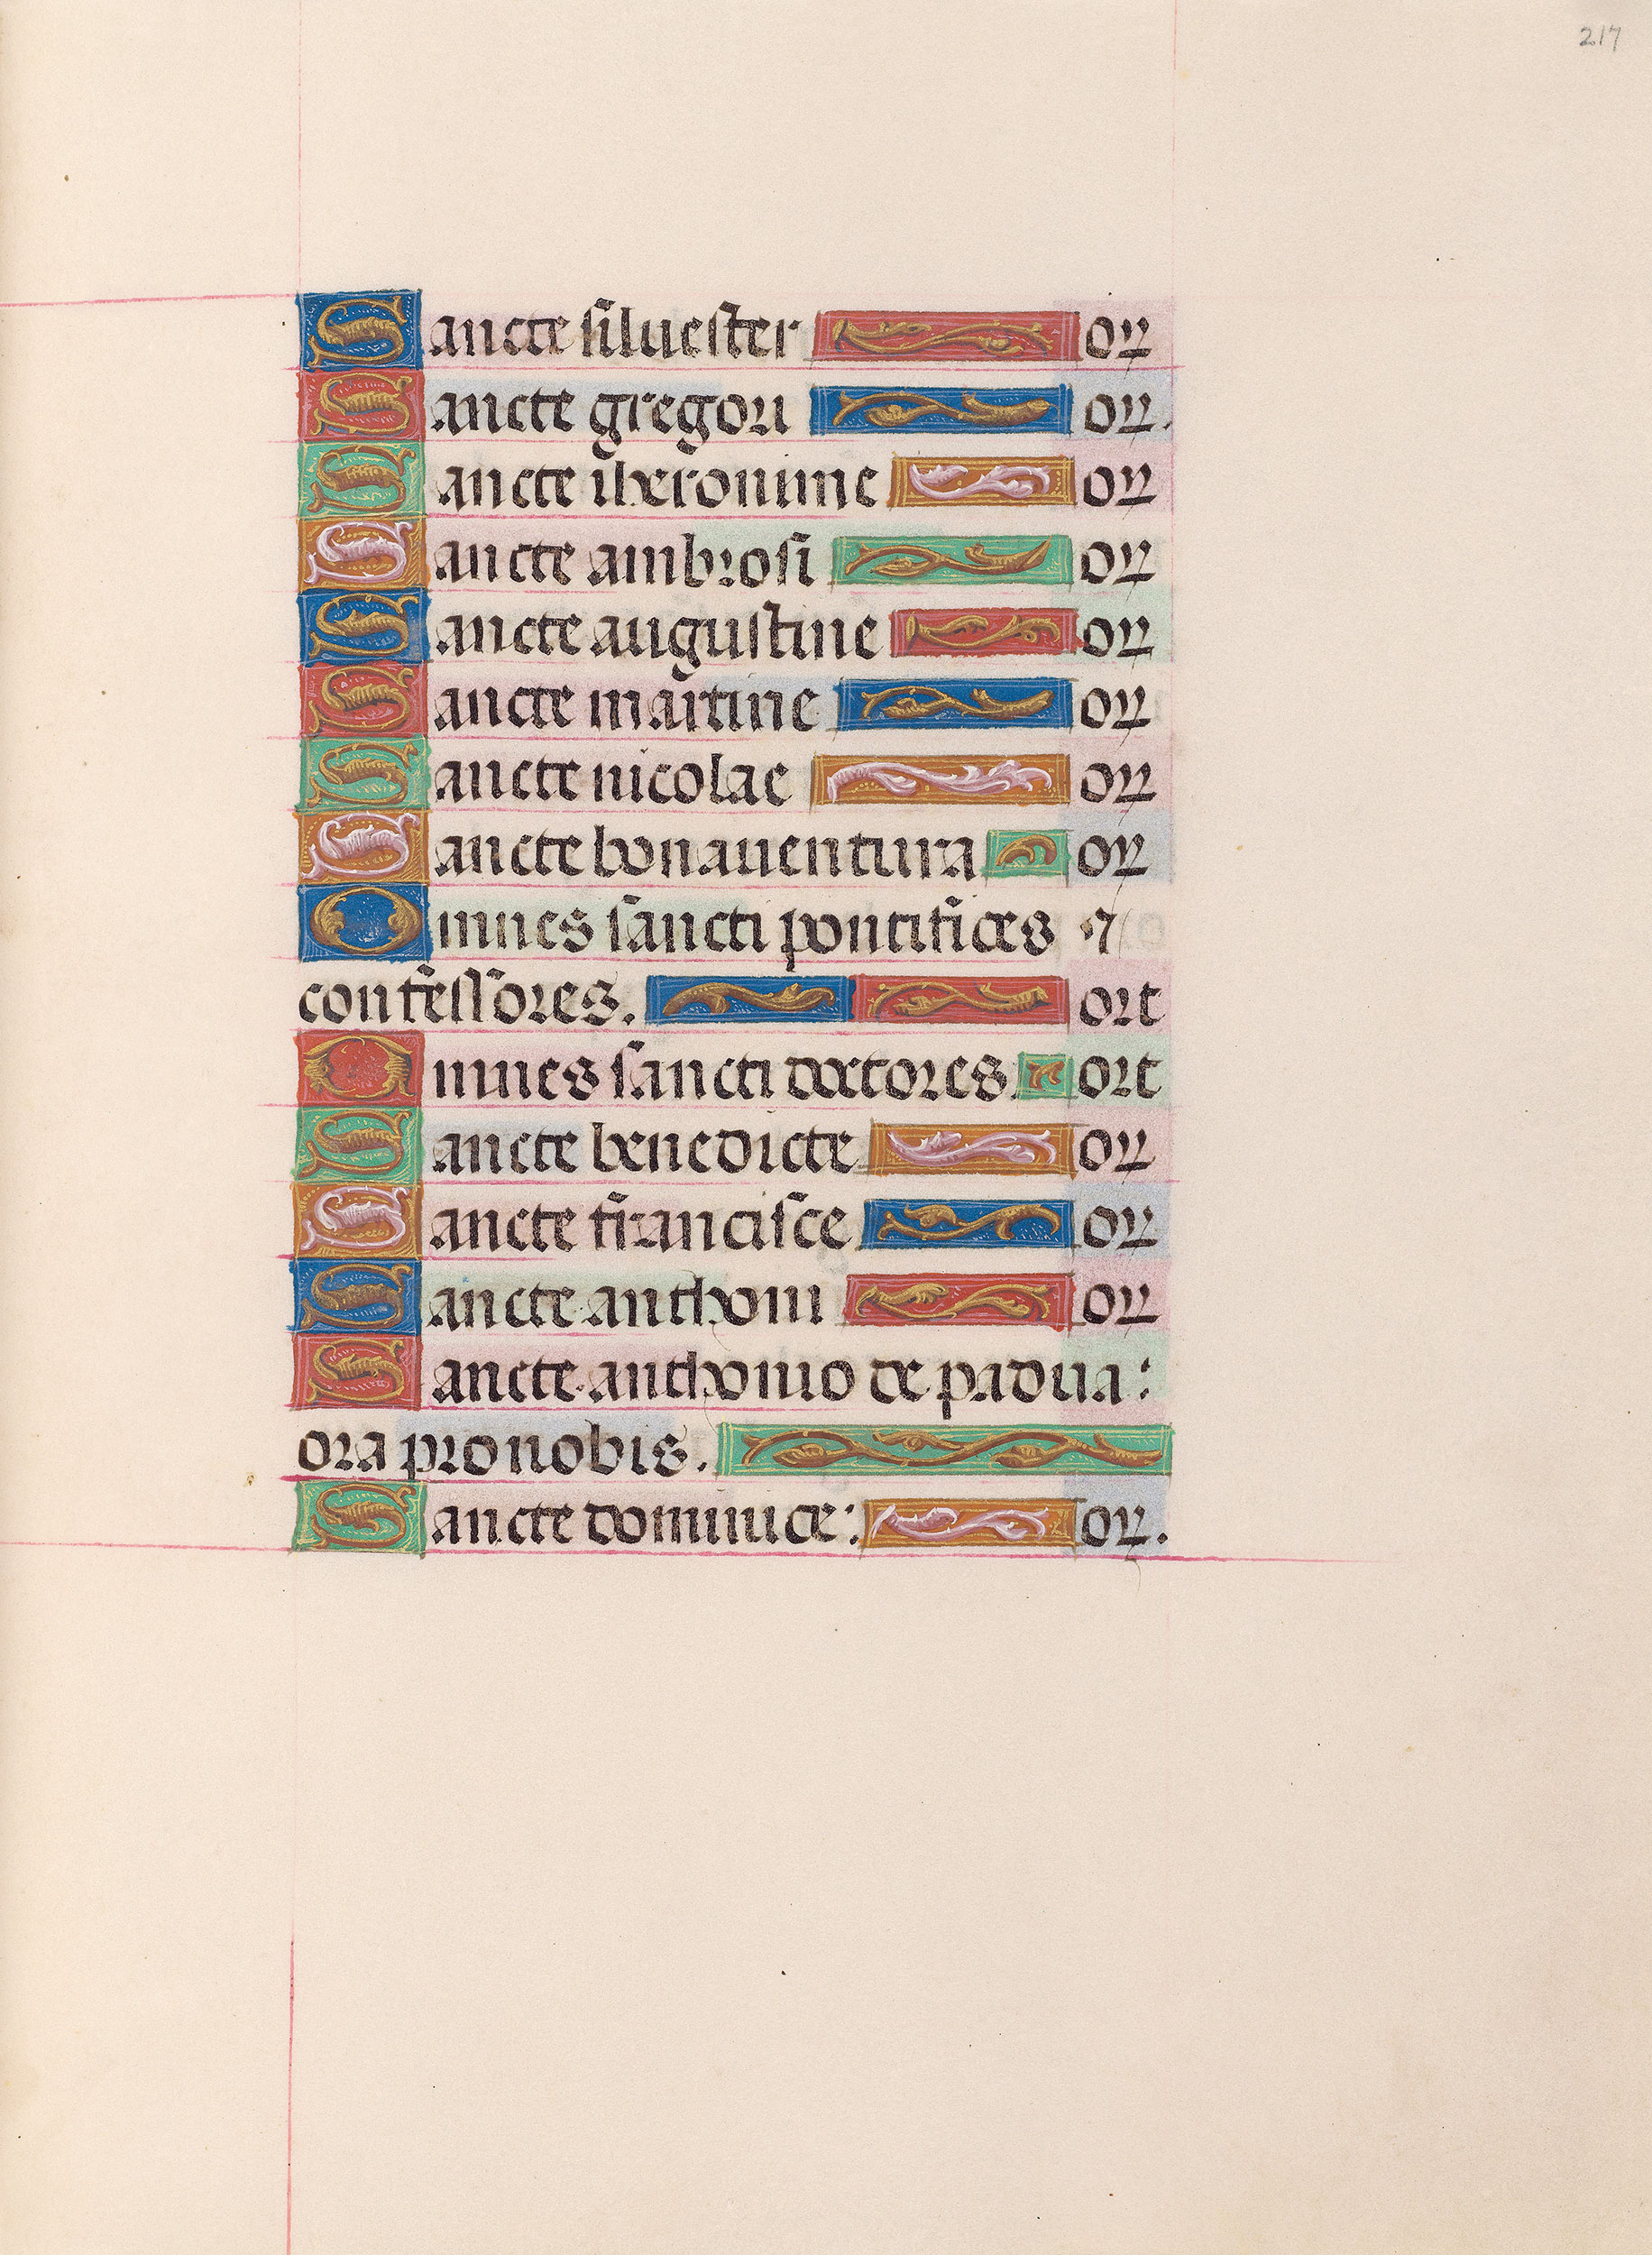 217
Sancte silvester or
Sancte gregori or.
Sancte iheronime or
Sancte ambrosi or
Sancte augustine or
Sancte martine or
Sancte nicolae or
Sancte bonaventura or
Omnes sancti pontifices ⁊
confessores. ort
Omnes sancti doctores. ort
Sancte benedicte or
Sancte francisce or
Sancte anthoni or
Sancte anthonio de padua:
ora pro nobis.
Sancte dominice: or.